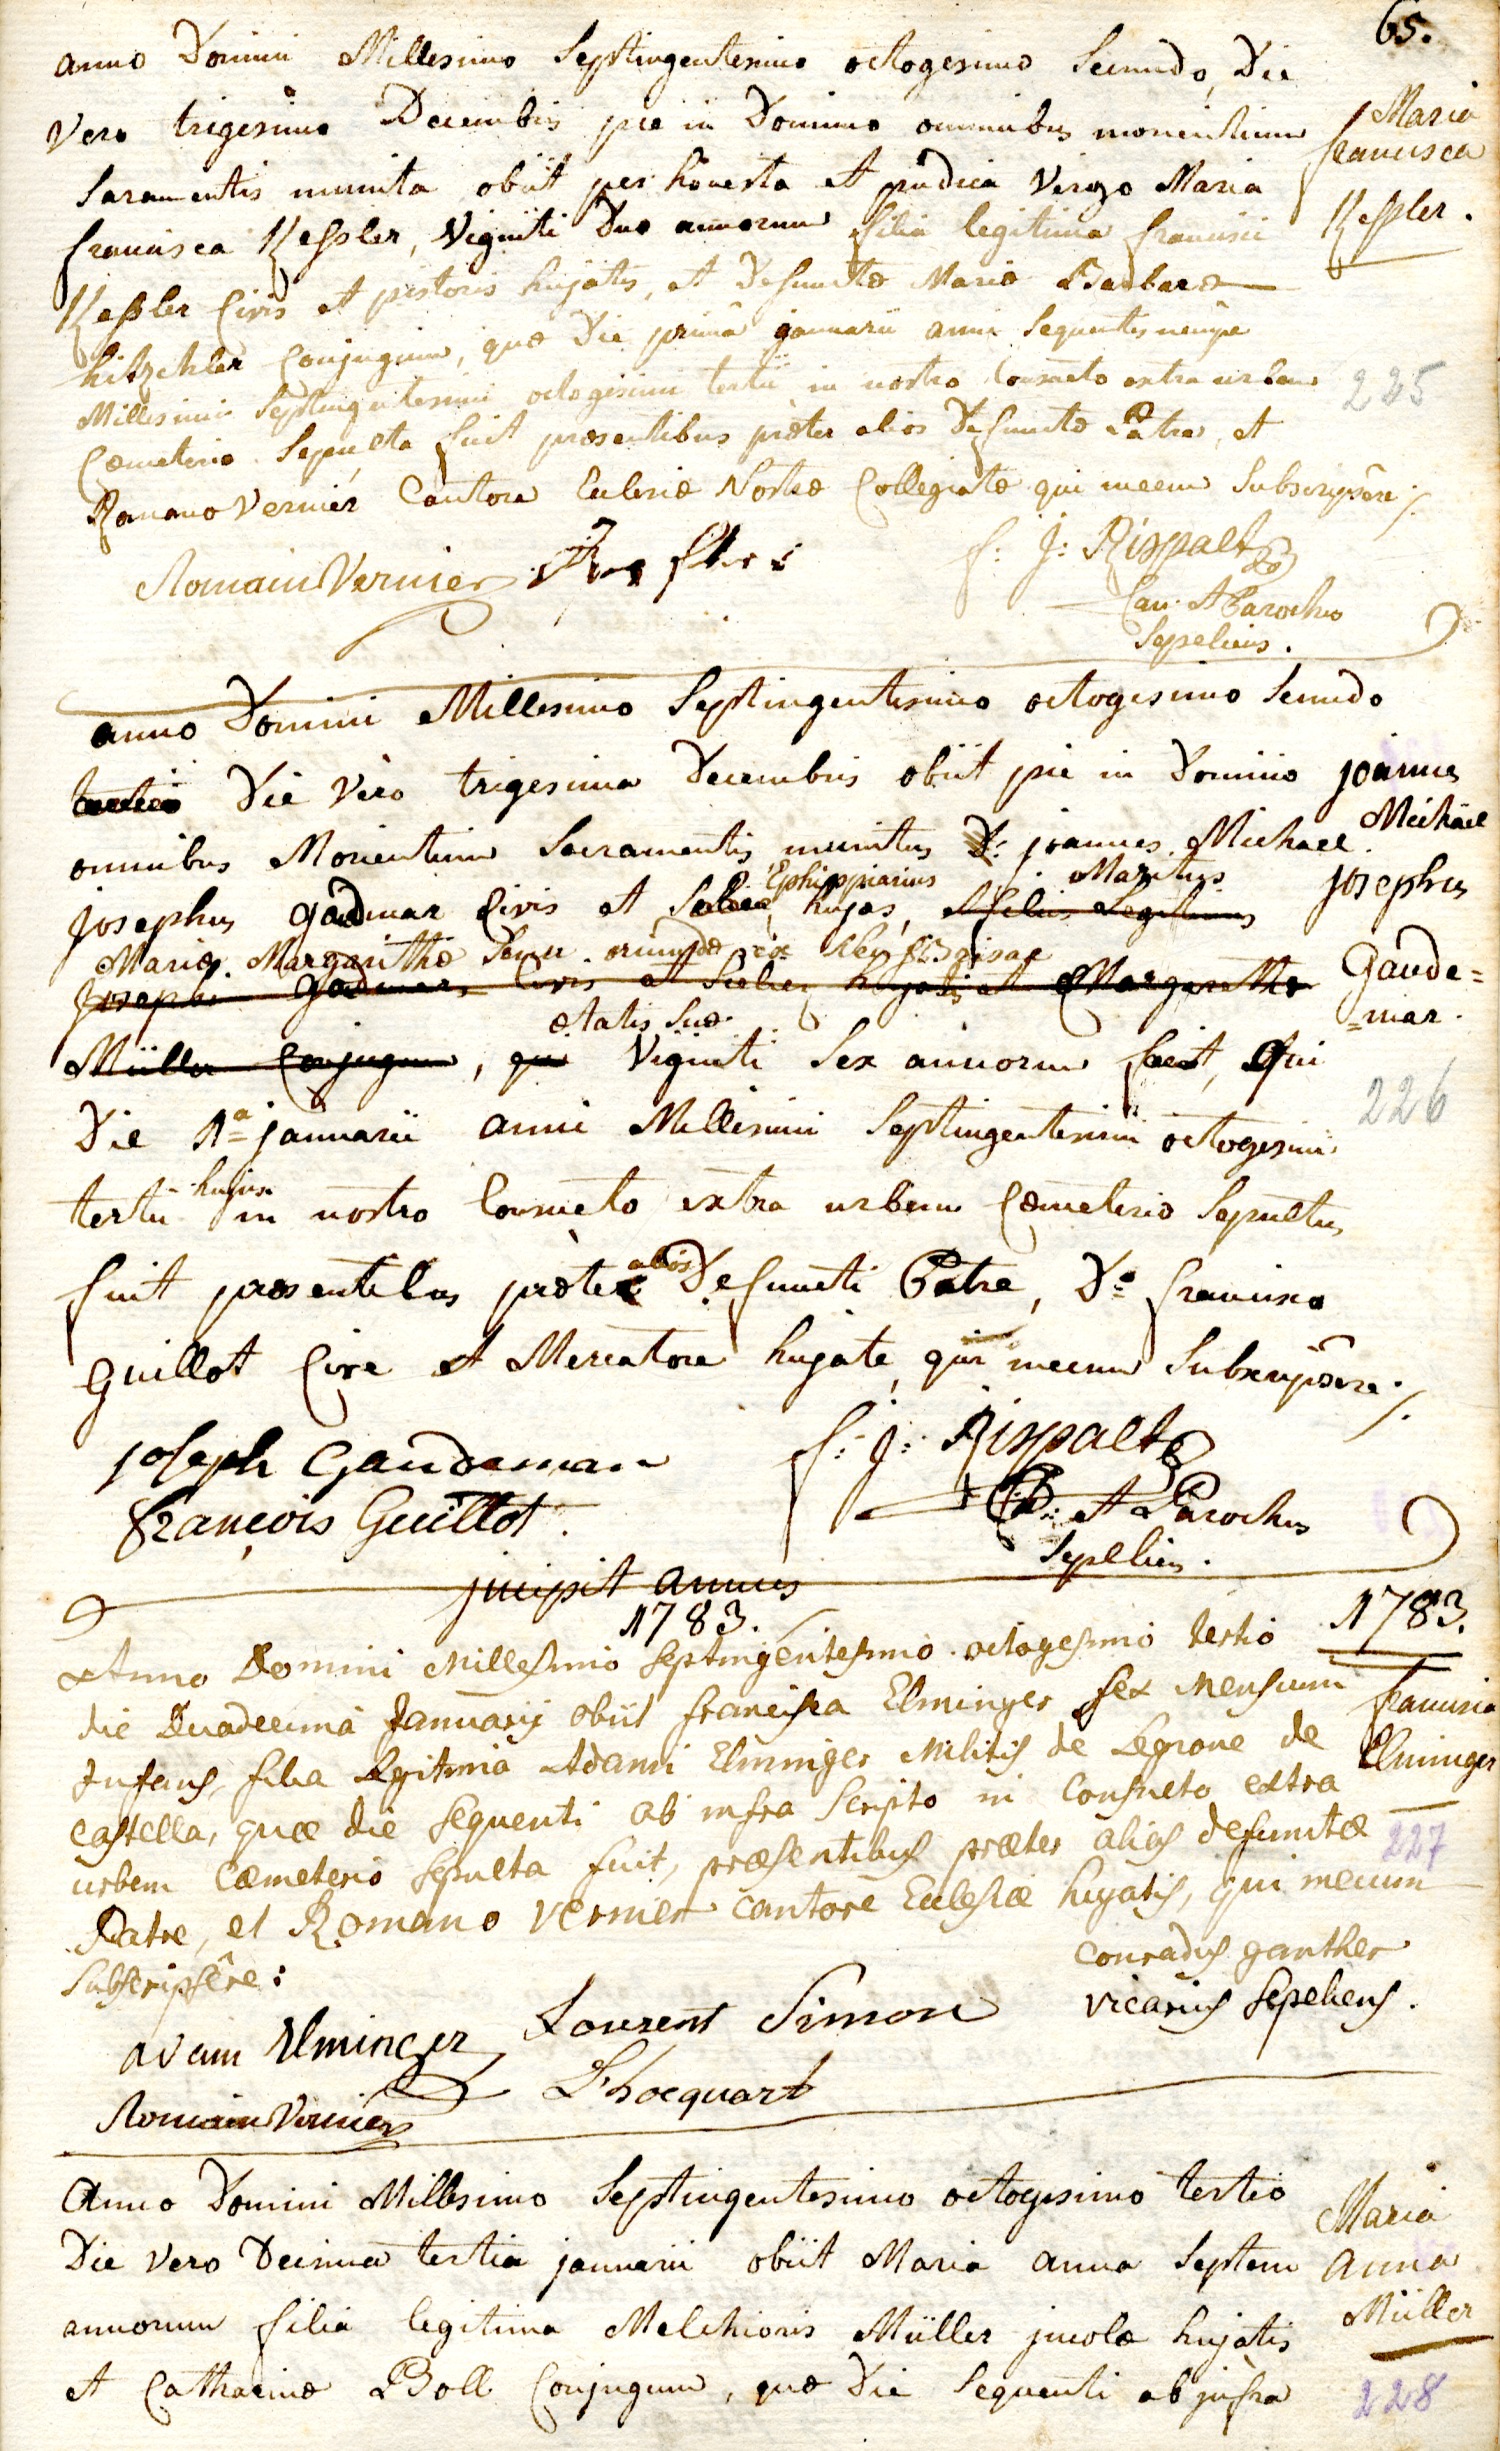 65.
anno Domini Millesimo Septingentesimo octogesimo Secundo, Die
Vero trigesima Decembris pie in Domino omnibus morientium
Maria
francisca
Kessler.
Saramentis munita obiit per honesta et pudica Virgo Maria
francisca Kessler, Viginti Duo annorum filia legitima francisci
Kessler Civis et pistoris hujatis, et Defunctæ Mariæ Barbaræ
Conjugum, quæ Die primâ januarii anni Sequentis nempe
Millesimi Septingentesimi octogesimi tertii in nostro Consueto extra urbem
225
Cœmeterio Sepulta fuit præsentibus præter alios Defunctæ Patre, et
Romano Vernier Cantore Ecclesiæ Nostræ Collegiatæ qui mecum Subscripsêre ./.
Romain Vernier
f: j: Rispalt
Can: et Parochus
Sepeliens.
anno Domini Millesimo Septingentesimo octogesimo Secundo
tertio Die Vero trigesima Decembris obiit pie in Domino
joannes
Michael
josephus
Gaude=
=mar.
omnibus Morientium Sacramentis munitus D: joannes Michael
Ephippiarius Maritus
josephus gadmar Civis et hujas, et filius Legitimus
Mariæ Margarithæ oriundæ ex
josephi gadmar Civis et hujatis et Margarethæ
ætatis Suæ
Müller Conjugum, qui Viginti Sex annorum fuit, Qui
226
Die 1ª januarii anni Millesimi Septingentesimi octogesimi
tertii hujus in nostro Consueto extra urbem Cœmeterio Sepultus
alios
fuit præsentibus præter Defuncti Patre, Dº francisco
guillot Cive et Mercatore hujate, qui mecum Subscripsêre ./.
joseph Gaudemar
françois Guillot.
f: j: Rispalt
C: et Parochus
Sepeliens.
jncipit annus
1783.
1783.
Anno Domini Millesimo Septingentesimo octogesimo tertio
die Duadecimâ Januarij obiit francisca Elminger sex Mensium
francisca
Elminger
Infans, filia Legitima Adami Elminger Militis de Legione de
Castella, quæ die sequenti ab infra Scripto in Consueto extra
urbem Cæmeterio sepulta fuit, præsentibus præter alios defunctæ
227
Patre, et Romano Vernier cantore Ecclesiæ hujatis, qui mecum
Subscripsêre:
Conradus ganther
vicarius Sepeliens.
adam Elminger
Laurent Simon
L'hocquart
Romain Vernier
Anno Domini Millesimo Septingentesimo octogesimo tertio
Die Vero Decima tertia januarii obiit Maria anna Septem
Maria
Anna
Müller
annorum filia legitima Melchioris Müller jncolæ hujatis
et Catharinæ Boll Conjugum, quæ Die Sequenti ab jnfra
228